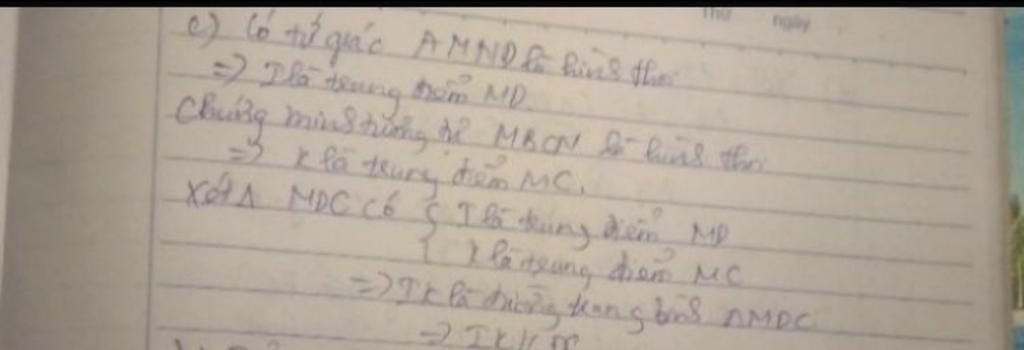 Thứ ngày
c) Có tứ giác AMND là hình thoi
=> I là trung điểm MD
Chứng minh tương tự MBCN là hình thoi
=> K là trung điểm MC.
Xét Δ MDC có { I là trung điểm MD
{ K là trung điểm MC
=> IK là đường trung bình ΔMDC
=> IK // DC